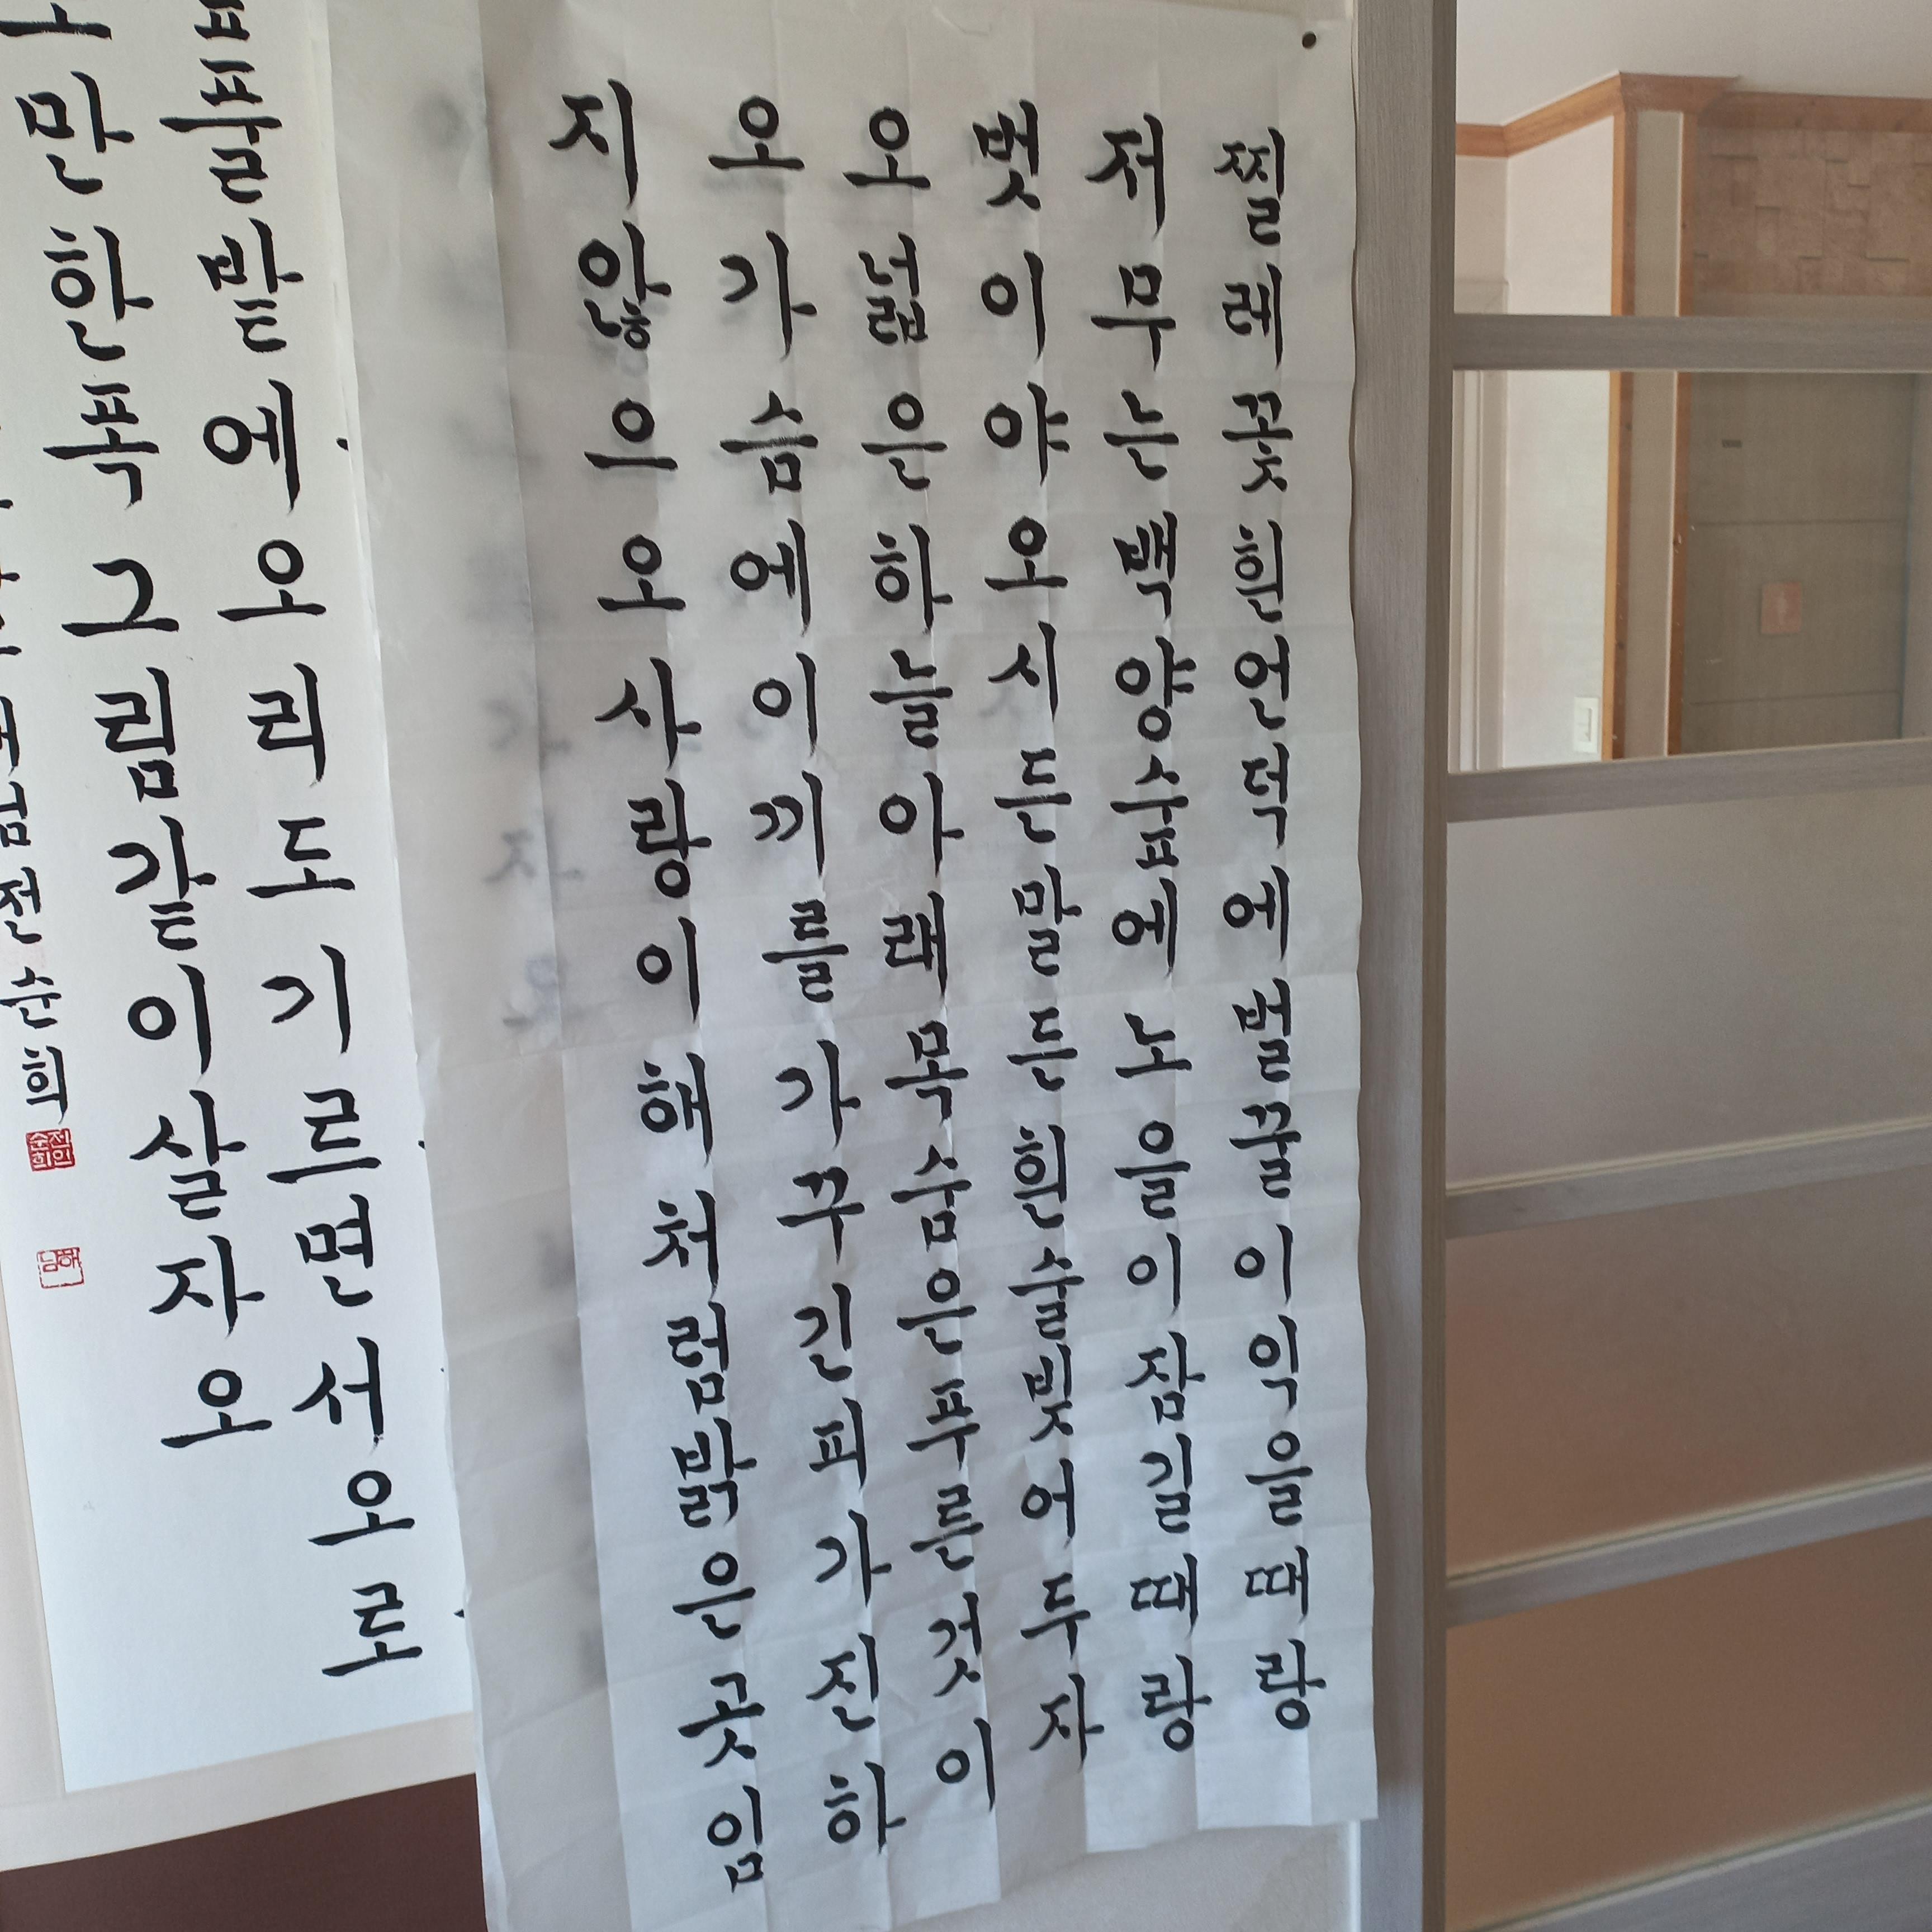 찔레꽃흰언덕에벌꿀이익을때랑
저무는백양숲에노을이잠길때랑
벗이야오시든말든흰술빚어두자
오넓은하늘아래목숨은푸른것이
오가슴에이끼를가꾸긴피가진하
지않으오사랑이해처럼밝은곳임
풀밭에오리도기르면서오로
만한폭그림같이살자오
전순희